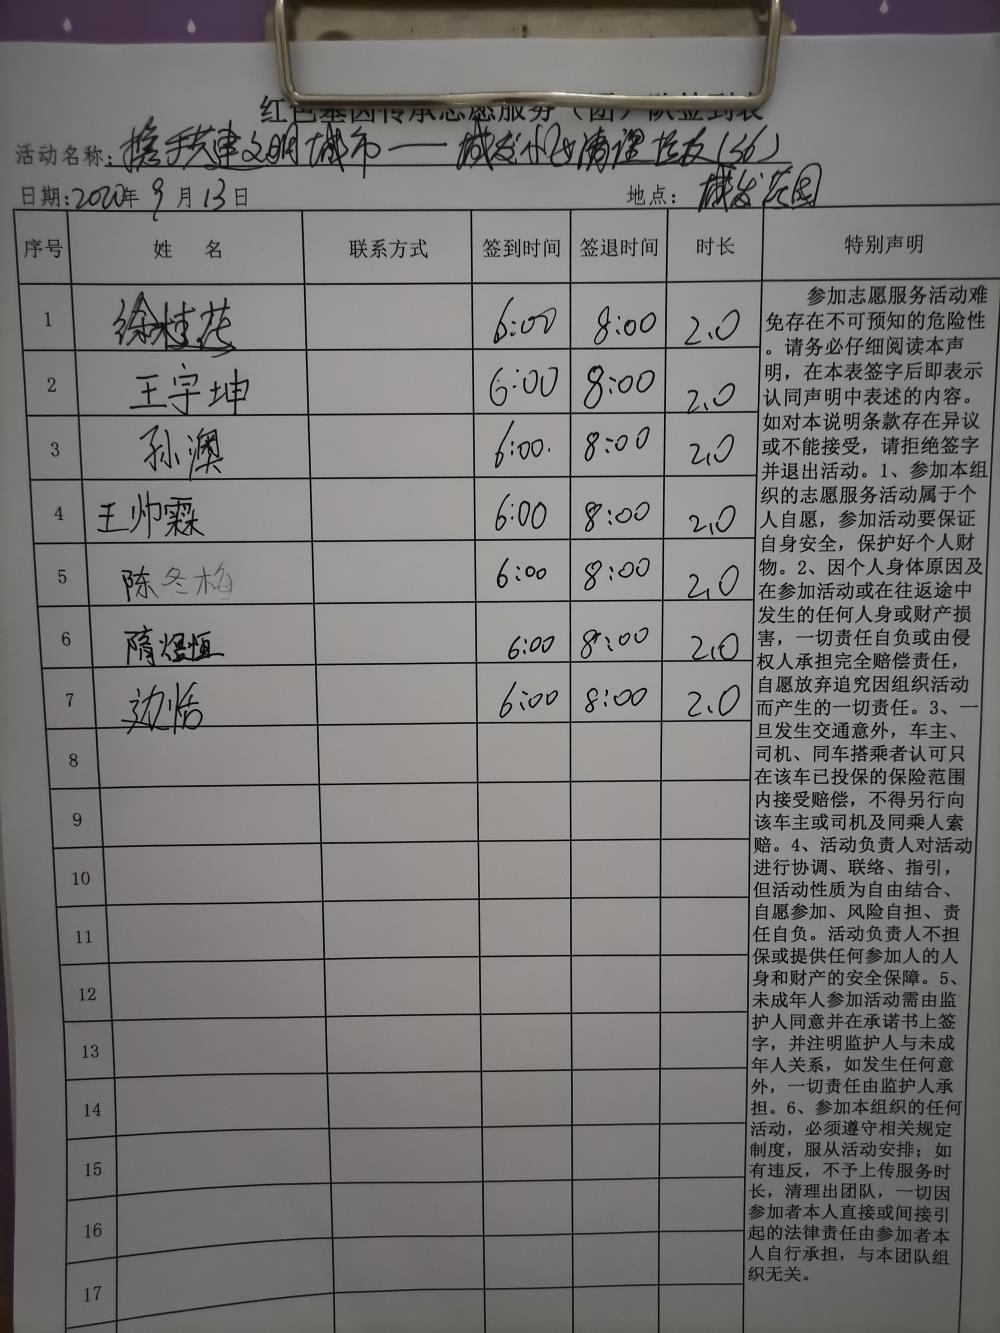 红色基因传承志愿服务（团）队签到表
活动名称：携手共建文明城市——城发小区清理垃圾（36）
日期：2020年9月13日 地点：城发花园
序号 姓 名 联系方式 签到时间 签退时间 时长 特别声明
1 徐桂花 6:00 8:00 2.0
2 王宇坤 6:00 8:00 2.0
3 孙澳 6:00 8:00 2.0
4 王帅霖 6:00 8:00 2.0
5 陈冬梅 6:00 8:00 2.0
6 隋煜恒 6:00 8:00 2.0
7 边恬 6:00 8:00 2.0
8
9
10
11
12
13
14
15
16
17
参加志愿服务活动难
免存在不可预知的危险性
。请务必仔细阅读本声
明，在本表签字后即表示
认同声明中表述的内容。
如对本说明条款存在异议
或不能接受，请拒绝签字
并退出活动。1、参加本组
织的志愿服务活动属于个
人自愿，参加活动要保证
自身安全，保护好个人财
物。2、因个人身体原因及
在参加活动或在往返途中
发生的任何人身或财产损
害，一切责任自负或由侵
权人承担完全赔偿责任，
自愿放弃追究因组织活动
而产生的一切责任。3、一
旦发生交通意外，车主、
司机、同车搭乘者认可只
在该车已投保的保险范围
内接受赔偿，不得另行向
该车主或司机及同乘人索
赔。4、活动负责人对活动
进行协调、联络、指引，
但活动性质为自由结合、
自愿参加、风险自担、责
任自负。活动负责人不担
保或提供任何参加人的人
身和财产的安全保障。5、
未成年人参加活动需由监
护人同意并在承诺书上签
字，并注明监护人与未成
年人关系，如发生任何意
外，一切责任由监护人承
担。6、参加本组织的任何
活动，必须遵守相关规定
制度，服从活动安排；如
有违反，不予上传服务时
长，清理出团队，一切因
参加者本人直接或间接引
起的法律责任由参加者本
人自行承担，与本团队组
织无关。